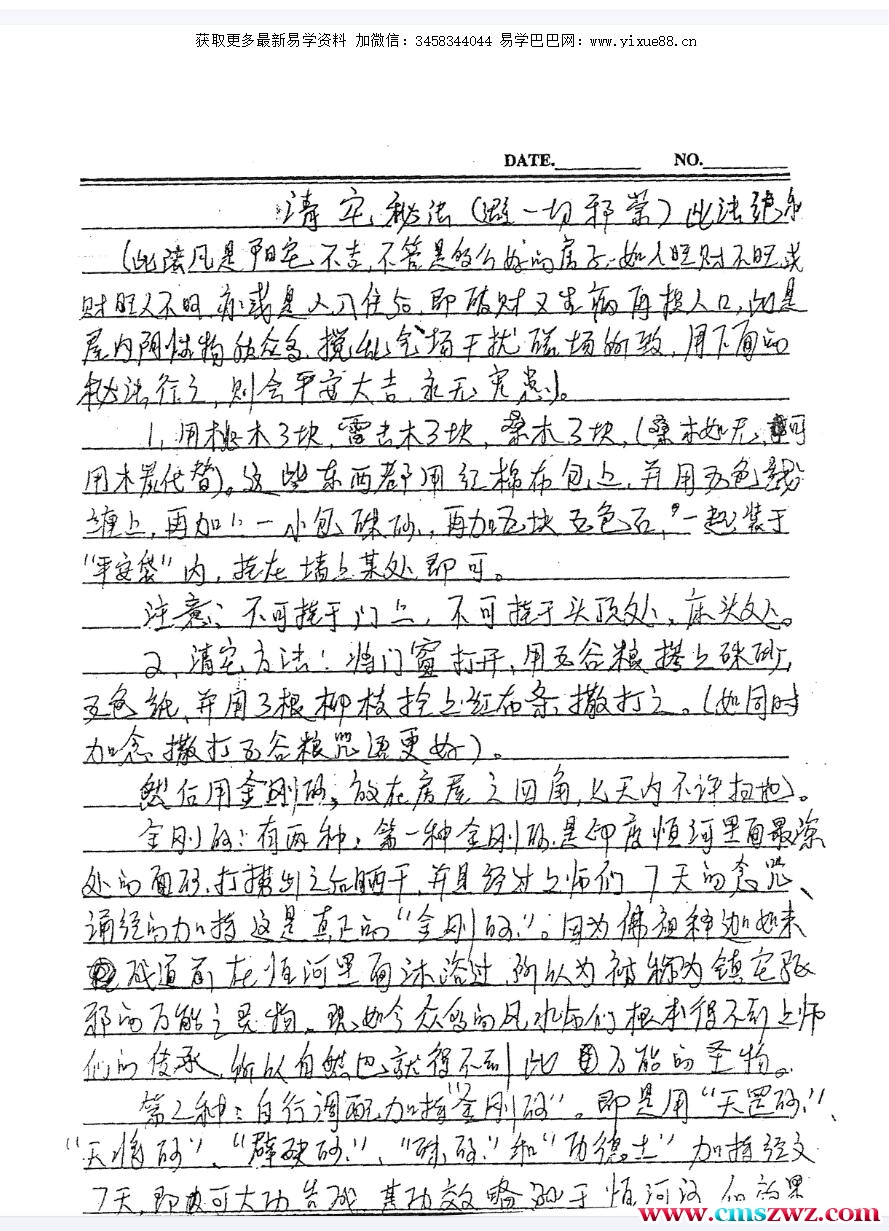 获取更多最新易学资料 加微信：3458344044 易学巴巴网：www.yixue88.cn
DATE. NO.
清宅秘法（避一切邪祟）此法绝
（此法凡是阳宅不吉，不管是多么好的房子，如人旺财不旺或
财旺人不旺，亦或是人入住后，即破财又生病再损人口，此是
屋内阴性物质众多，搅乱气场干扰磁场所致，用下面的
秘法行之，则会平安大吉，永无灾患）。
1，用桃木3块，雷击木3块，桑木3块，（桑木如无，可
用木炭代替）。这些东西都用红棉布包上，并用五色线
缠上，再加上一小包硃砂，再加五块五色石，一起装于
“平安袋”内，挂在墙上某处即可。
注意：不可挂于门上，不可挂于头顶处，床头处。
2，清宅方法：将门窗打开，用五谷粮拌上硃砂，
五色纸，并用3根柳枝拴上红布条，撒打之。（如同时
加念撒打五谷粮咒语更好）。
然后用金刚砂，放在房屋之四角，七天内不许扫地）。
金刚砂：有两种，第一种金刚砂是印度恒河里面最深
处的面砂，打捞出之后晒干，并且经过上师们7天的念咒、
诵经的加持这是真正的“金刚砂”。因为佛祖释迦如来
成道前在恒河里面沐浴过，所以为被称为镇宅驱
邪的万能之灵物。现如今众多的风水师们根本得不到上师
们的传承，所以自然也就得不到此万能的圣物。
第2种：自行调配加持“金刚砂”。即是用“天罡砂”、
“天将砂”、“辟砂”、“硃砂”和“功德土”加持经文
7天，即可大功告成，其功效略逊于恒河沙
www.cmszwz.com